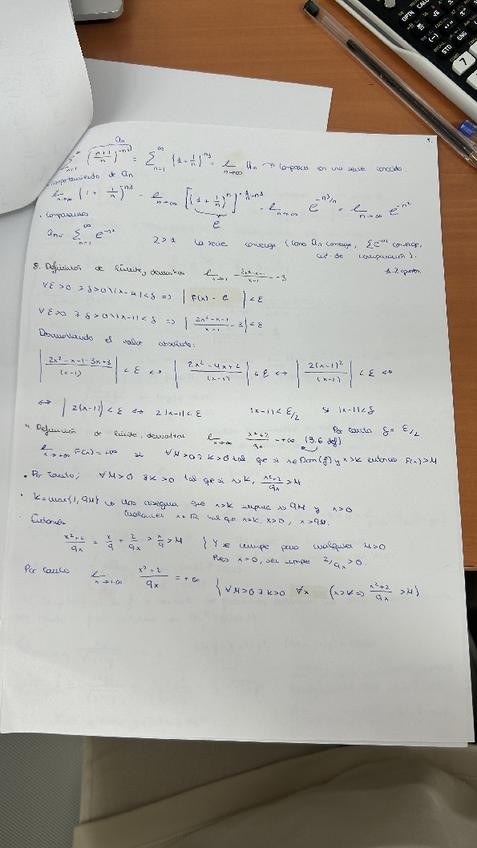 aₙ
(n+1/n)^-n³ = Σ_{n=1}^∞ (1+1/n)^-n³ = lim_{n→∞} aₙ → comparos con una serie conocida
comportamiento de aₙ
lim_{n→∞} (1+1/n)^-n³ = lim_{n→∞} [(1+1/n)^n]^{1/n·-n³} = lim_{n→∞} e^{-n³/n} = lim_{n→∞} e^{-n²}
e
· Comparamos
aₙ = Σ_{n=1}^∞ e^{-n²} 2>1 La serie converge (como aₙ converge, Σe^{-n²} converge,
crit. de comparación).
3. Definición de límite, demostrar lim_{x→1} 2x²-x-1/x-1 = 3
1.2 puntos
∀ε>0 ∃δ>0 \ |x-a|<δ ⇒ |F(x) - ℓ| < ε
∀ε>0 ∃δ>0 \ |x-1|<δ ⇒ |2x²-x-1/x-1 - 3| < ε
Desarrollando el valor absoluto:
|2x²-x-1-3x+3/(x-1)| < ε ⇔ |2x²-4x+2/(x-1)| < ε ⇔ |2(x-1)²/(x-1)| < ε ⇔
⇔ |2(x-1)| < ε ⇔ 2|x-1| < ε |x-1| < ε/2 Si |x-1|<δ
Por tanto δ = ε/2
4. Definición de límite, demostrar lim_{x→∞} x²+2/9x = +∞ (3.6 def)
lim_{x→∞} F(x) = +∞ si ∀M>0 ∃k>0 tal que si x∈Dom(f) y x>k entonces F(x)>M
· Por tanto, ∀M>0 ∃k>0 tal que si x>k, x²+2/9x > M
· k = max{1, 9M} → nos asegura que x>k implica x>9M y x>0
Cualquier x∈ℝ tal que x>k, x>0, x>9M.
Entonces
x²+2/9x = x/9 + 2/9x > x/9 > M } Y se cumple para cualquier M>0
Pues x>0, 2/9x > 0.
Por tanto lim_{x→+∞} x²+2/9x = +∞ { ∀M>0 ∃k>0 ∀x (x>k ⇒ x²+2/9x > M)